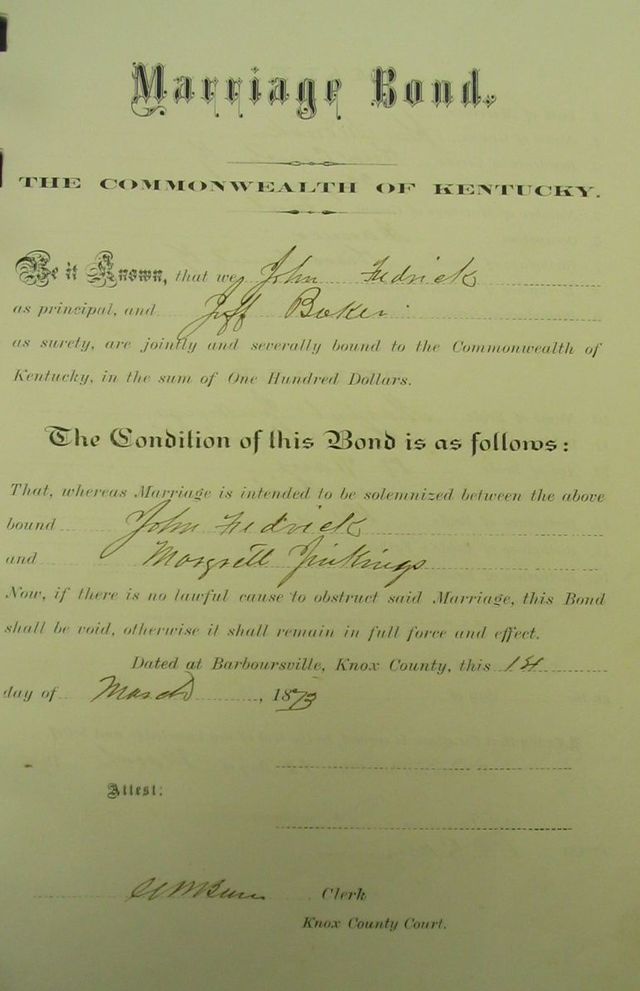 Marriage Bond.
THE COMMONWEALTH OF KENTUCKY.
Be it Known, that we, John Fedrick
as principal, and Jeff Baker
as surety, are jointly and severally bound to the Commonwealth of
Kentucky, in the sum of One Hundred Dollars.
The Condition of this Bond is as follows:
That, whereas Marriage is intended to be solemnized between the above
bound John Fedrick
and Margrett Jinkings
Now, if there is no lawful cause to obstruct said Marriage, this Bond
shall be void, otherwise it shall remain in full force and effect.
Dated at Barboursville, Knox County, this
day of March, 1873
Attest:
Clerk
Knox County Court.